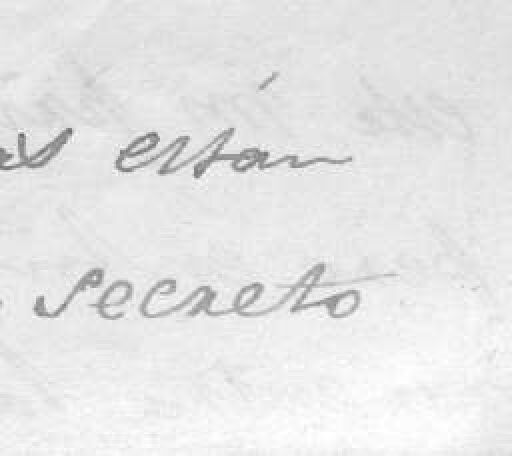 están
secreto